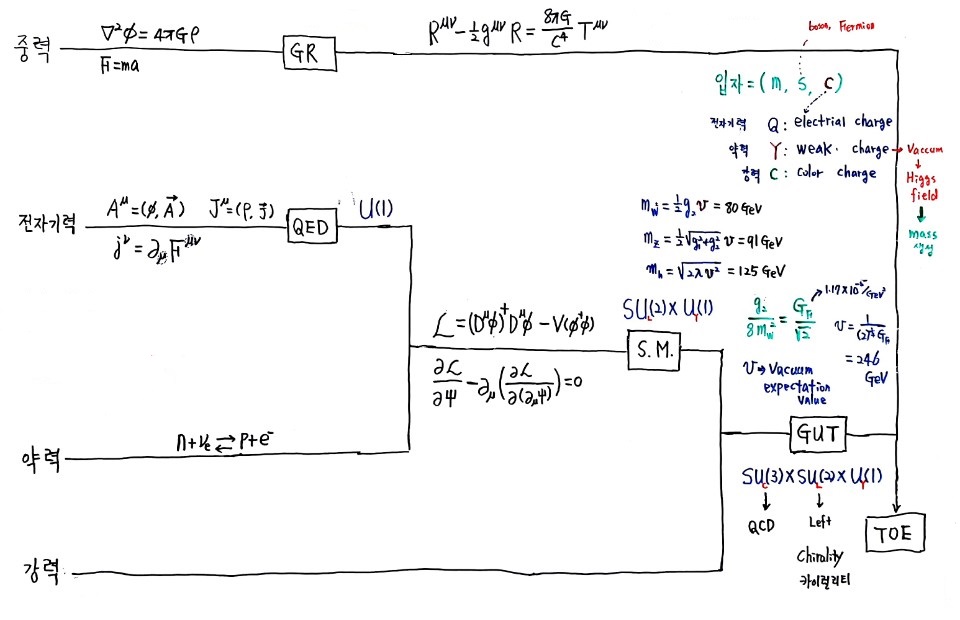 중력
∇²φ = 4πGρ
F = ma
GR
R^μν - ½g^μν R = 8πG/C⁴ T^μν
boson, Fermion
입자 = (m, s, c)
전자기력 Q : electrial charge
약력 Y : weak. charge → Vaccum
강력 C : color charge
↓
Higgs
field
↓
mass
생성
전자기력
A^μ = (φ, A⃗) J^μ = (ρ, J⃗)
j^ν = ∂_μ F^μν
QED
U(1)
m_W = ½g₂v = 80 GeV
m_Z = ½√(g₁²+g₂²) v = 91 GeV
m_h = √(2λv²) = 125 GeV
SU_L(2) × U_Y(1)
ℒ = (D^μφ)^†D^μφ - V(φ^†φ)
∂ℒ/∂Ψ - ∂_μ(∂ℒ/∂(∂_μΨ)) = 0
S.M.
g₂/8m_W² = G_F/√2
1.17×10⁻⁵/GeV²
v = 1/((2)^½ G_F)
= 246
GeV
v → Vacuum
expectation
value
약력
n + ν_e ⇄ p + e⁻
GUT
SU_C(3) × SU_L(2) × U_Y(1)
↓ ↓
QCD Left
Chirality
카이럴리티
TOE
강력